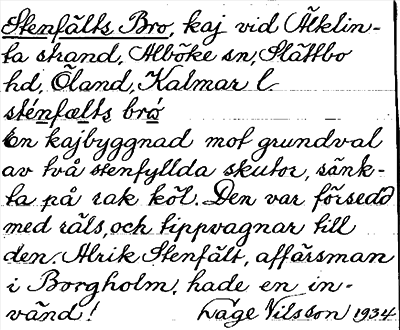 Stenfälts Bro, kaj vid Äleklin-
ta strand, Alböke sn, Slättbo
hd, Öland, Kalmar l.
sténfælts bró
En kajbyggnad mot grundval
av två stenfyllda skutor, sänk-
ta på rak köl. Den var försedd
med räls, och tippvagnar till
den. Alrik Stenfält, affärsman
i Borgholm, hade en in-
vänd! Våge Nilsson 1934